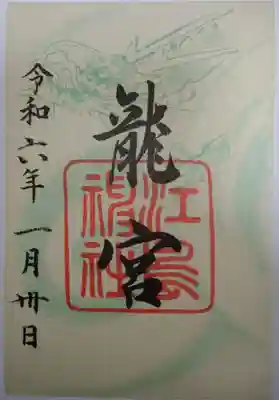 龍宮
江島神社
令和六年 一月卅日